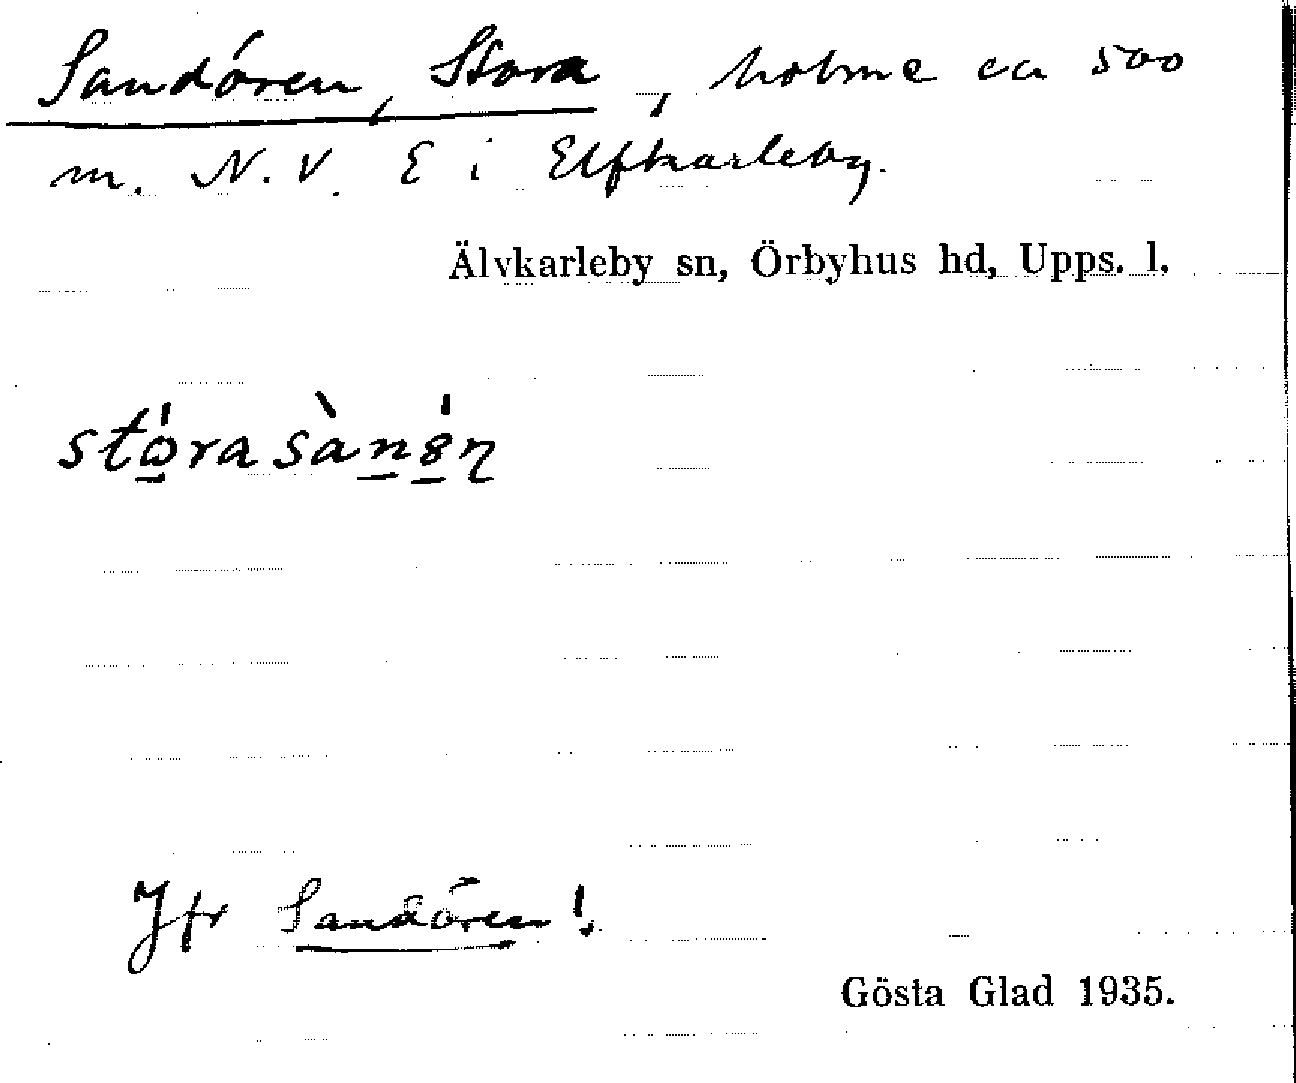 Sandören, Stora, holme ca 500
m. N.V. E i Elfkarleby.
Älvkarleby sn, Örbyhus hd, Upps. l.
Jfr Sandören!
Gösta Glad 1935.